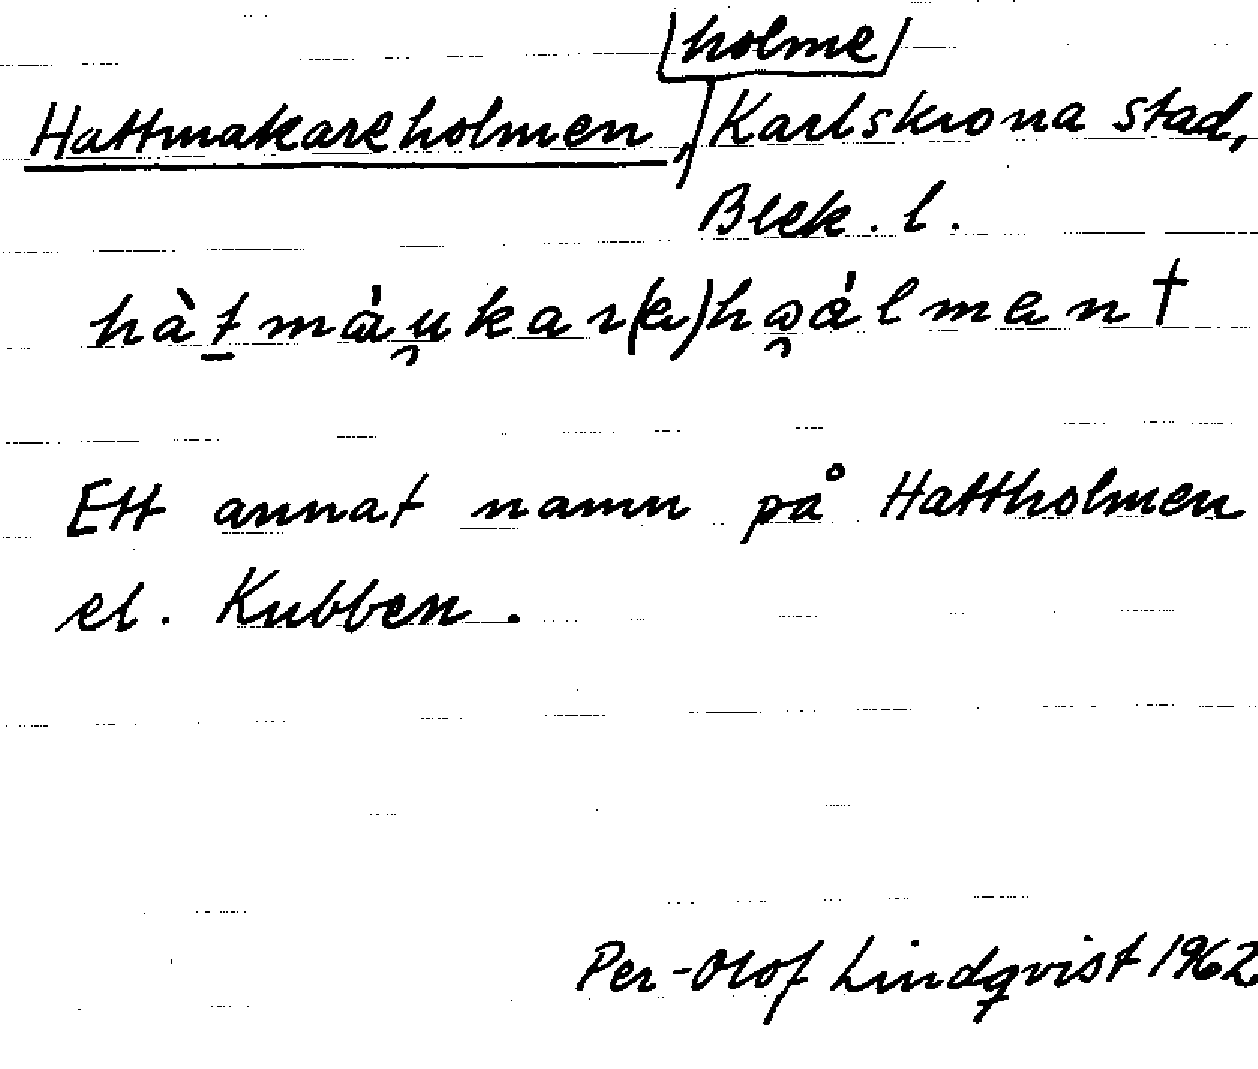 holme
Hattmakareholmen, Karlskrona stad,
Blek. l.
hàt̠mȧu̯kar(e)ho̯ȧlmen†
Ett annat namn på Hattholmen
el. Kubben.
Per-Olof Lindqvist 1962